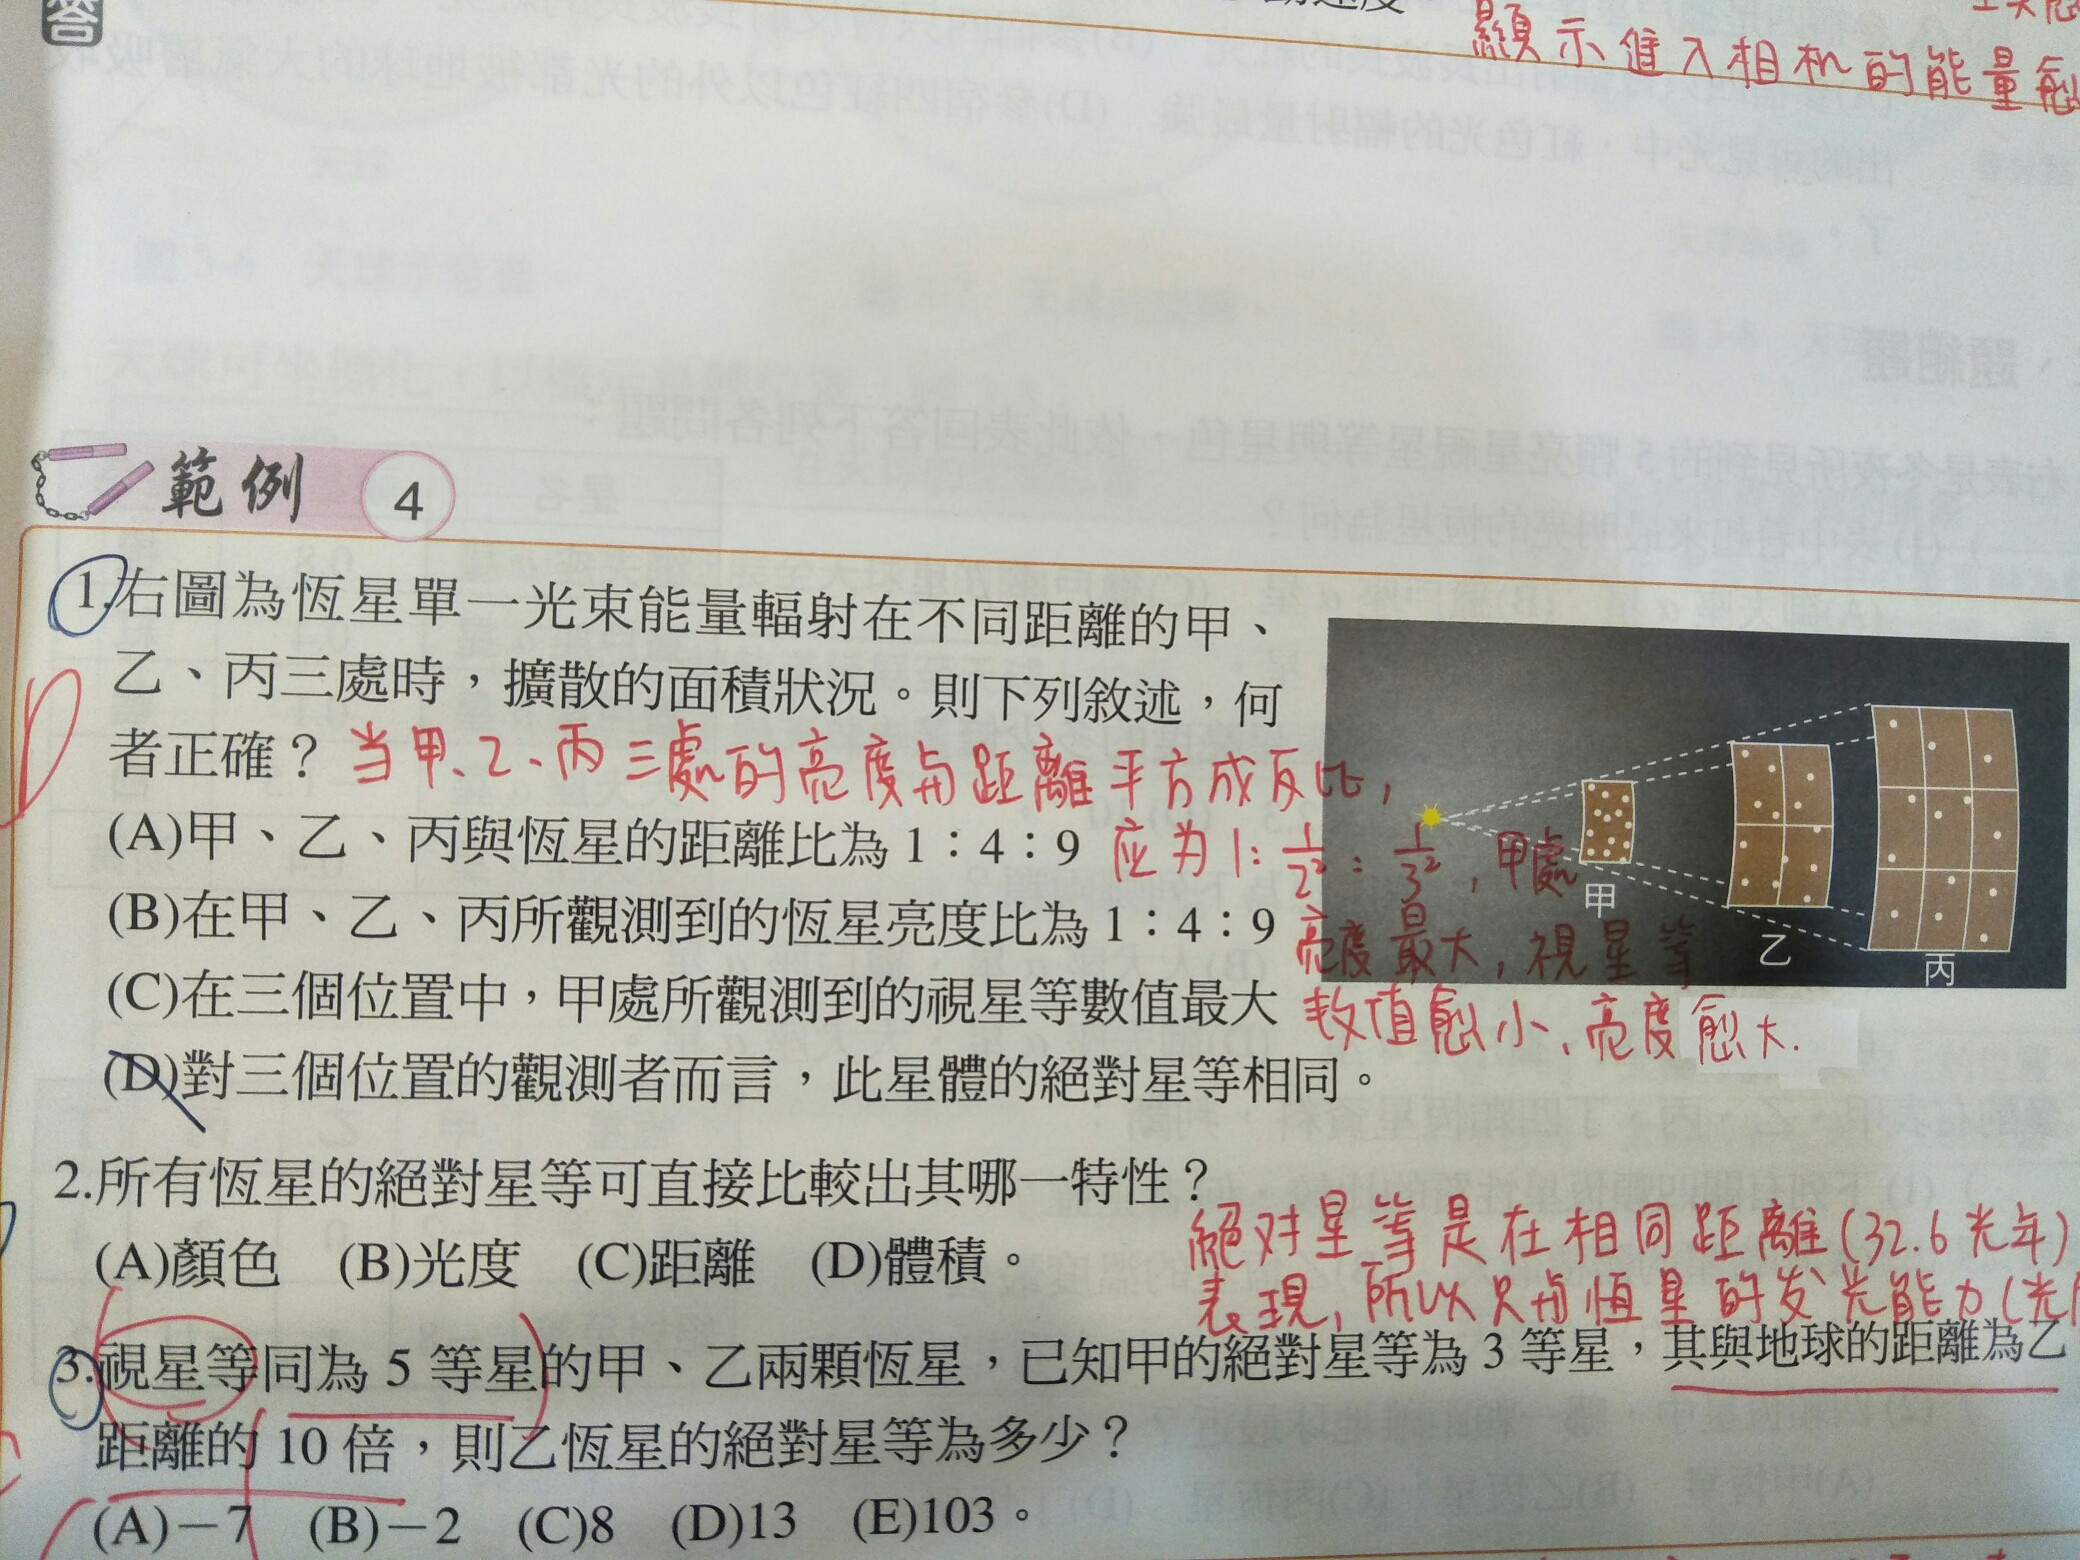 答
顯示進入相机的能量愈
範例 4
1.右圖為恆星單一光束能量輻射在不同距離的甲、
乙、丙三處時，擴散的面積狀況。則下列敘述，何
者正確？当甲、乙、丙三處的亮度与距離平方成反比，
(A)甲、乙、丙與恆星的距離比為 1：4：9 应为 1: 1/2² : 1/3²，甲處
(B)在甲、乙、丙所觀測到的恆星亮度比為 1：4：9 亮度最大，視星等
(C)在三個位置中，甲處所觀測到的視星等數值最大 数值愈小、亮度愈大.
(D)對三個位置的觀測者而言，此星體的絕對星等相同。
甲
乙
丙
D
2.所有恆星的絕對星等可直接比較出其哪一特性？
(A)顏色 (B)光度 (C)距離 (D)體積。
絕对星等是在相同距離(32.6光年)
表現，所以只与恒星的发光能力(光
3.視星等同為 5 等星的甲、乙兩顆恆星，已知甲的絕對星等為 3 等星，其與地球的距離為乙
距離的 10 倍，則乙恆星的絕對星等為多少？
(A)－7 (B)－2 (C)8 (D)13 (E)103。